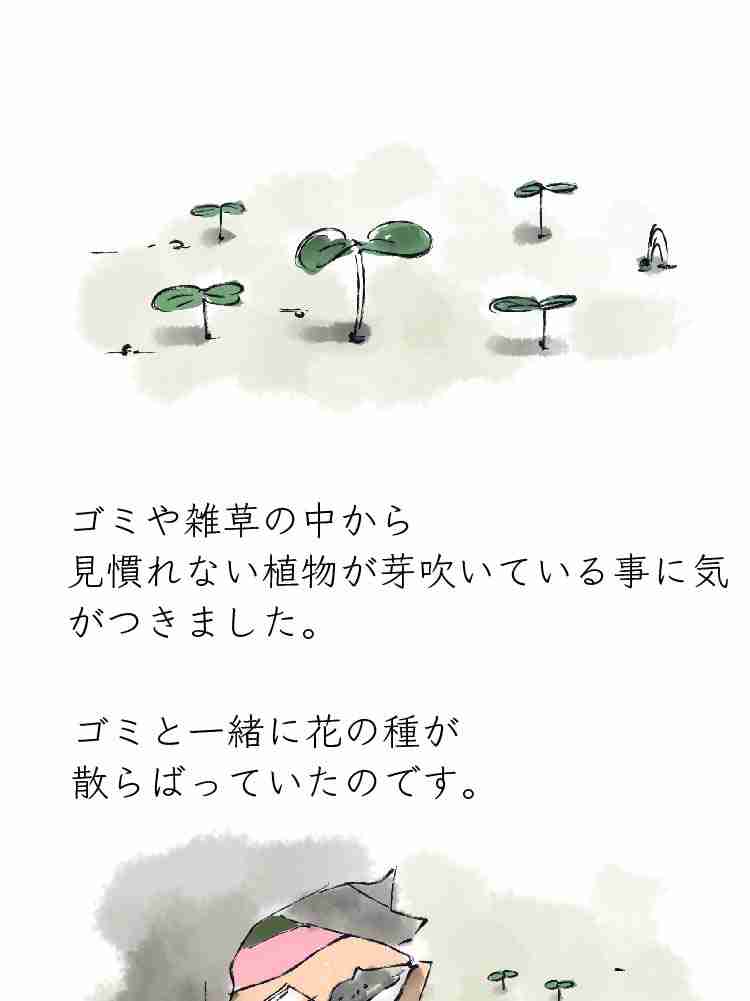 ゴミや雑草の中から
見慣れない植物が芽吹いている事に気
がつきました。
ゴミと一緒に花の種が
散らばっていたのです。